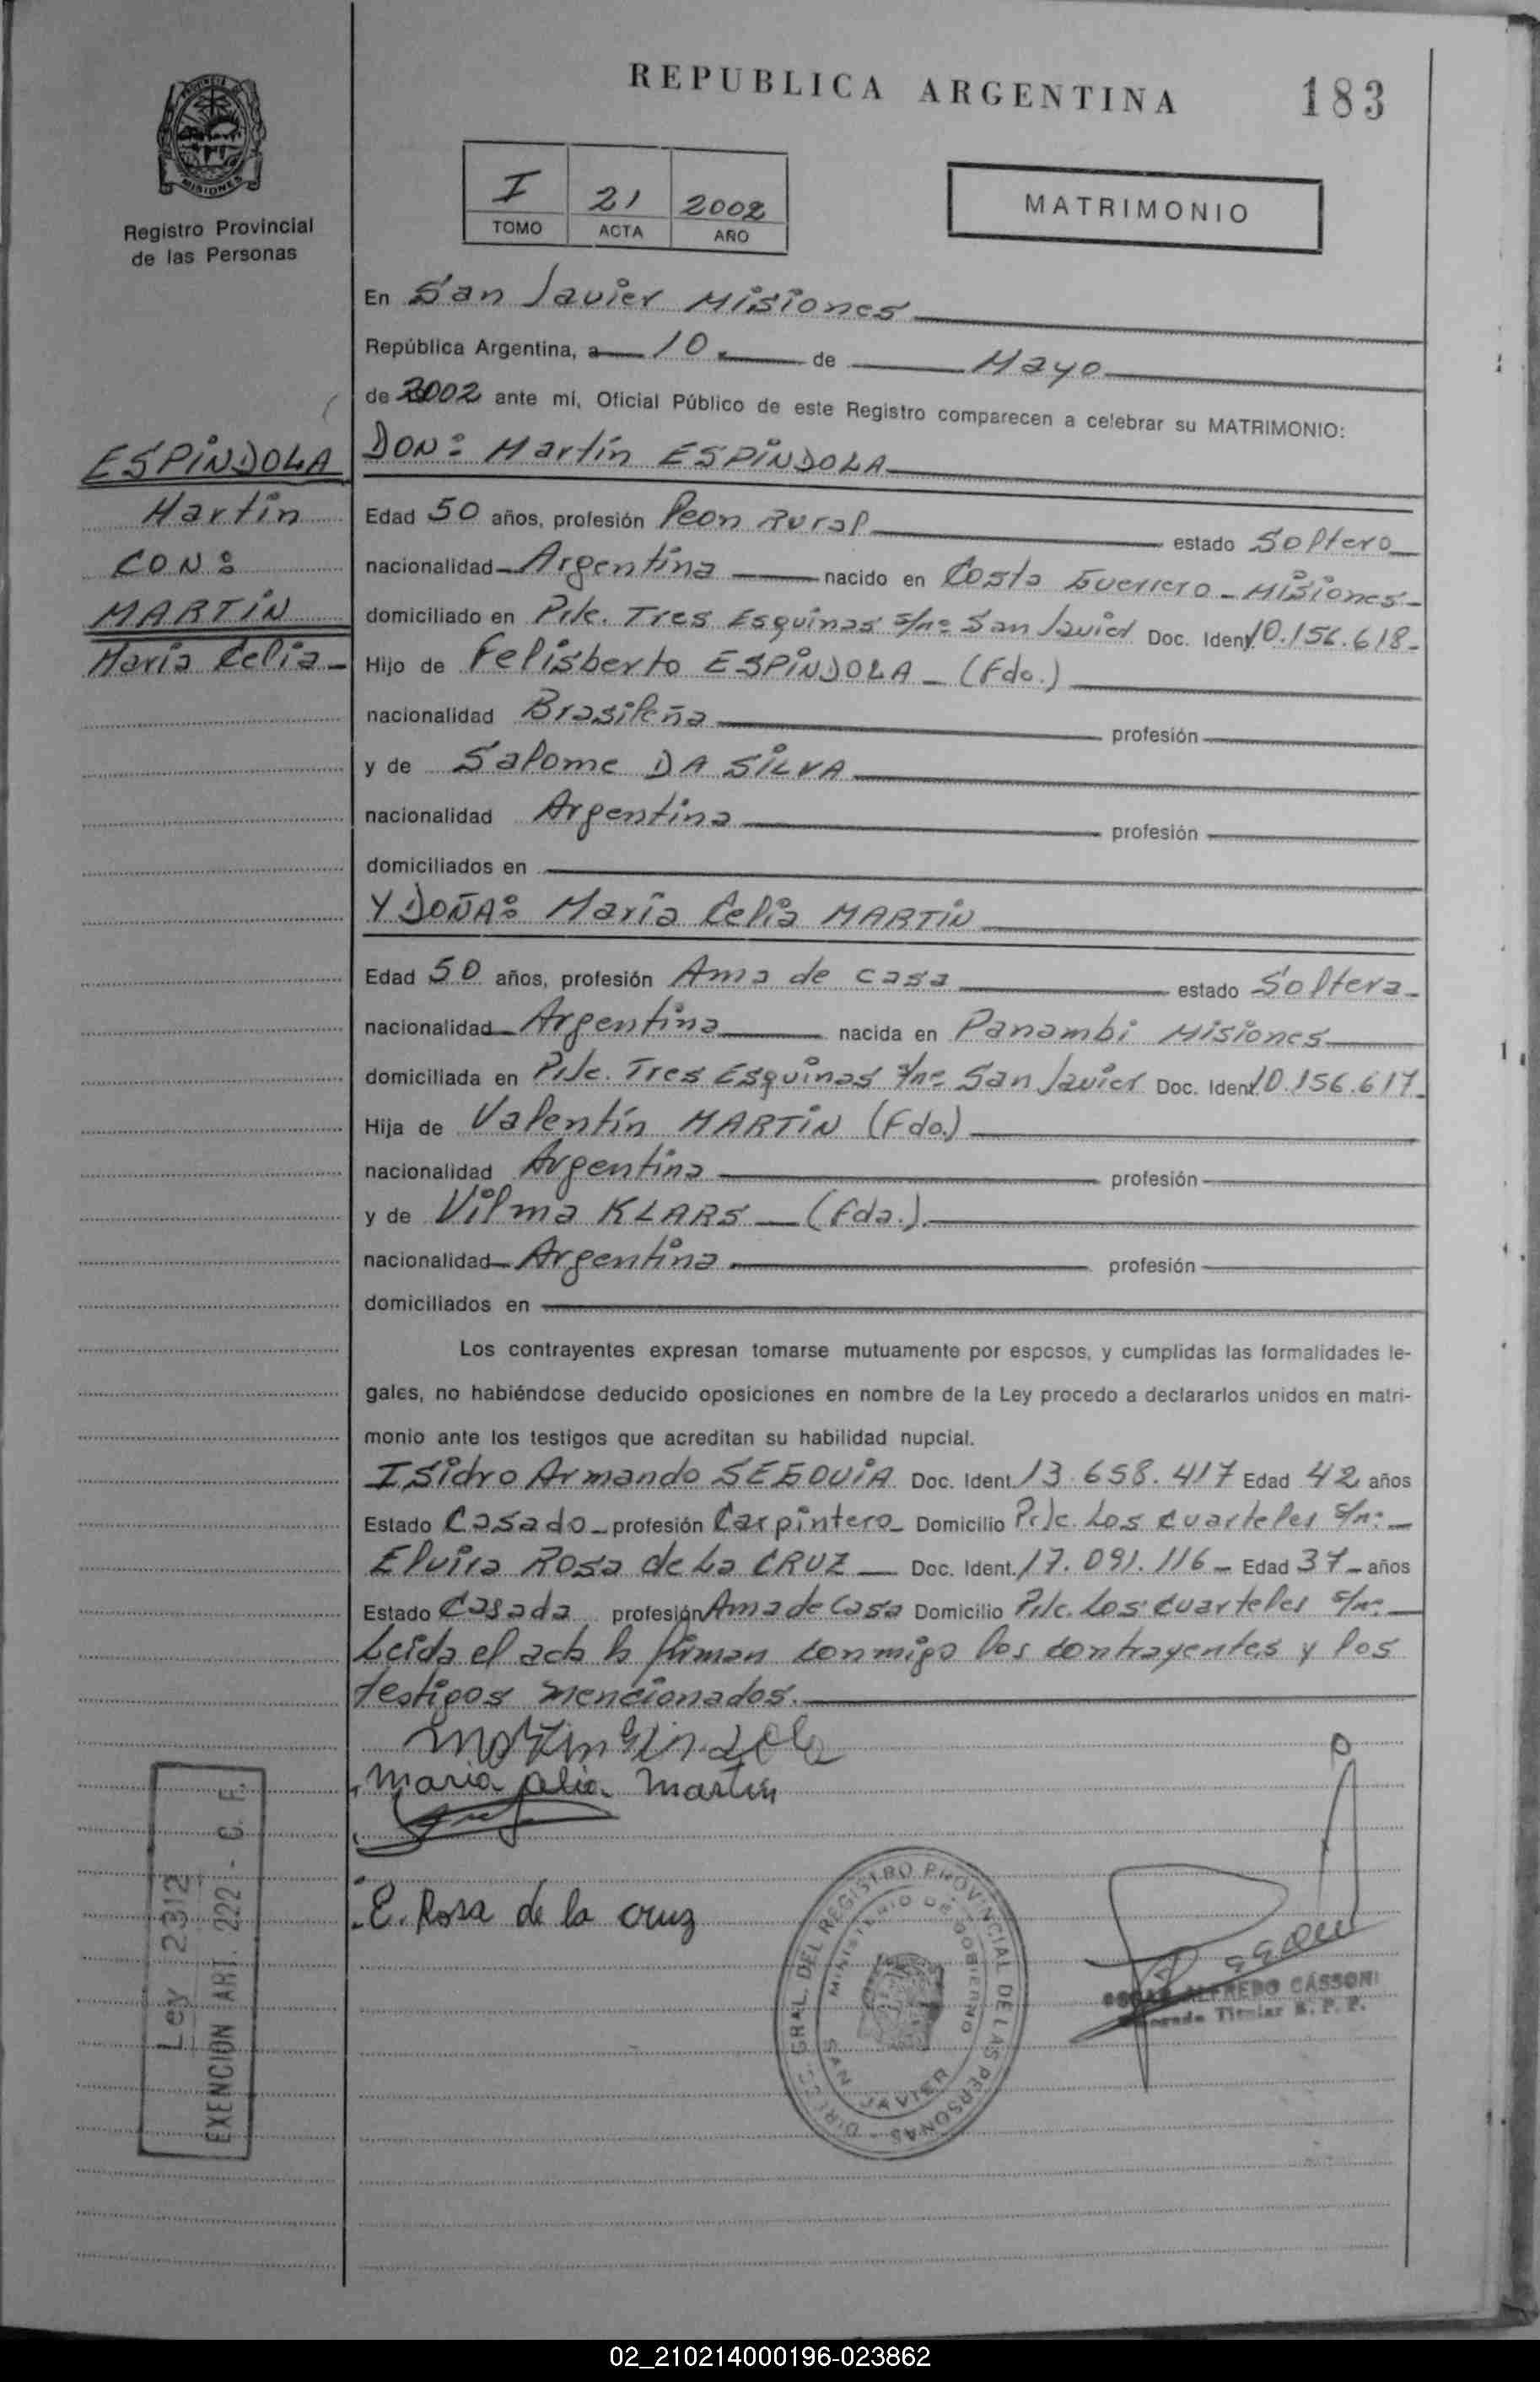 REPUBLICA ARGENTINA
183
PROVINCIA DE
MISIONES
Registro Provincial
de las Personas
I 21 2002
TOMO ACTA AÑO
MATRIMONIO
En San Javier Misiones
República Argentina, a 10 de Mayo
de 2002 ante mi, Oficial Público de este Registro comparecen a celebrar su MATRIMONIO:
ESPINDOLA
Martín
CON:
MARTIN
María Celia
DON: Martín ESPINDOLA
Edad 50 años, profesión Peon Rural estado Soltero
nacionalidad Argentina nacido en Costa Guerrero - Misiones-
domiciliado en Pje. Tres Esquinas s/nº San Javier Doc. Ident 10.156.618-
Hijo de Felisberto ESPINDOLA - (Fdo.)
nacionalidad Brasileña profesión
y de Salome DA SILVA
nacionalidad Argentina profesión
domiciliados en
Y DOÑA: María Celia MARTIN
Edad 50 años, profesión Ama de casa estado Soltera-
nacionalidad Argentina nacida en Panambi Misiones
domiciliada en Pje. Tres Esquinas s/nº San Javier Doc. Ident 10.156.617-
Hija de Valentín MARTIN (Fdo.)
nacionalidad Argentina profesión
y de Vilma KLARS - (fda.)
nacionalidad Argentina profesión
domiciliados en
Los contrayentes expresan tomarse mutuamente por esposos, y cumplidas las formalidades le-
gales, no habiéndose deducido oposiciones en nombre de la Ley procedo a declararlos unidos en matri-
monio ante los testigos que acreditan su habilidad nupcial.
Isidro Armando SEGOVIA Doc. Ident. 13.658.417 Edad 42 años
Estado Casado - profesión Carpintero - Domicilio Pje. Los cuarteles s/nº -
Elvira Rosa de La CRUZ - Doc. Ident. 17.091.116 - Edad 37 - años
Estado Casada profesión Ama de Casa Domicilio Pje. Los cuarteles s/nº
Leida el acta la firman conmigo los contrayentes y los
testigos mencionados.
maria celia martin
E. Rosa de la cruz
Ley 2312
EXENCION ART. 222 - C. F.
DIREC. GRAL. DEL REGISTRO PROVINCIAL DE LAS PERSONAS
MINISTERIO DE GOBIERNO
SAN JAVIER
OSCAR ALFREDO CASSONI
Titular R. P. P.
02_210214000196-023862